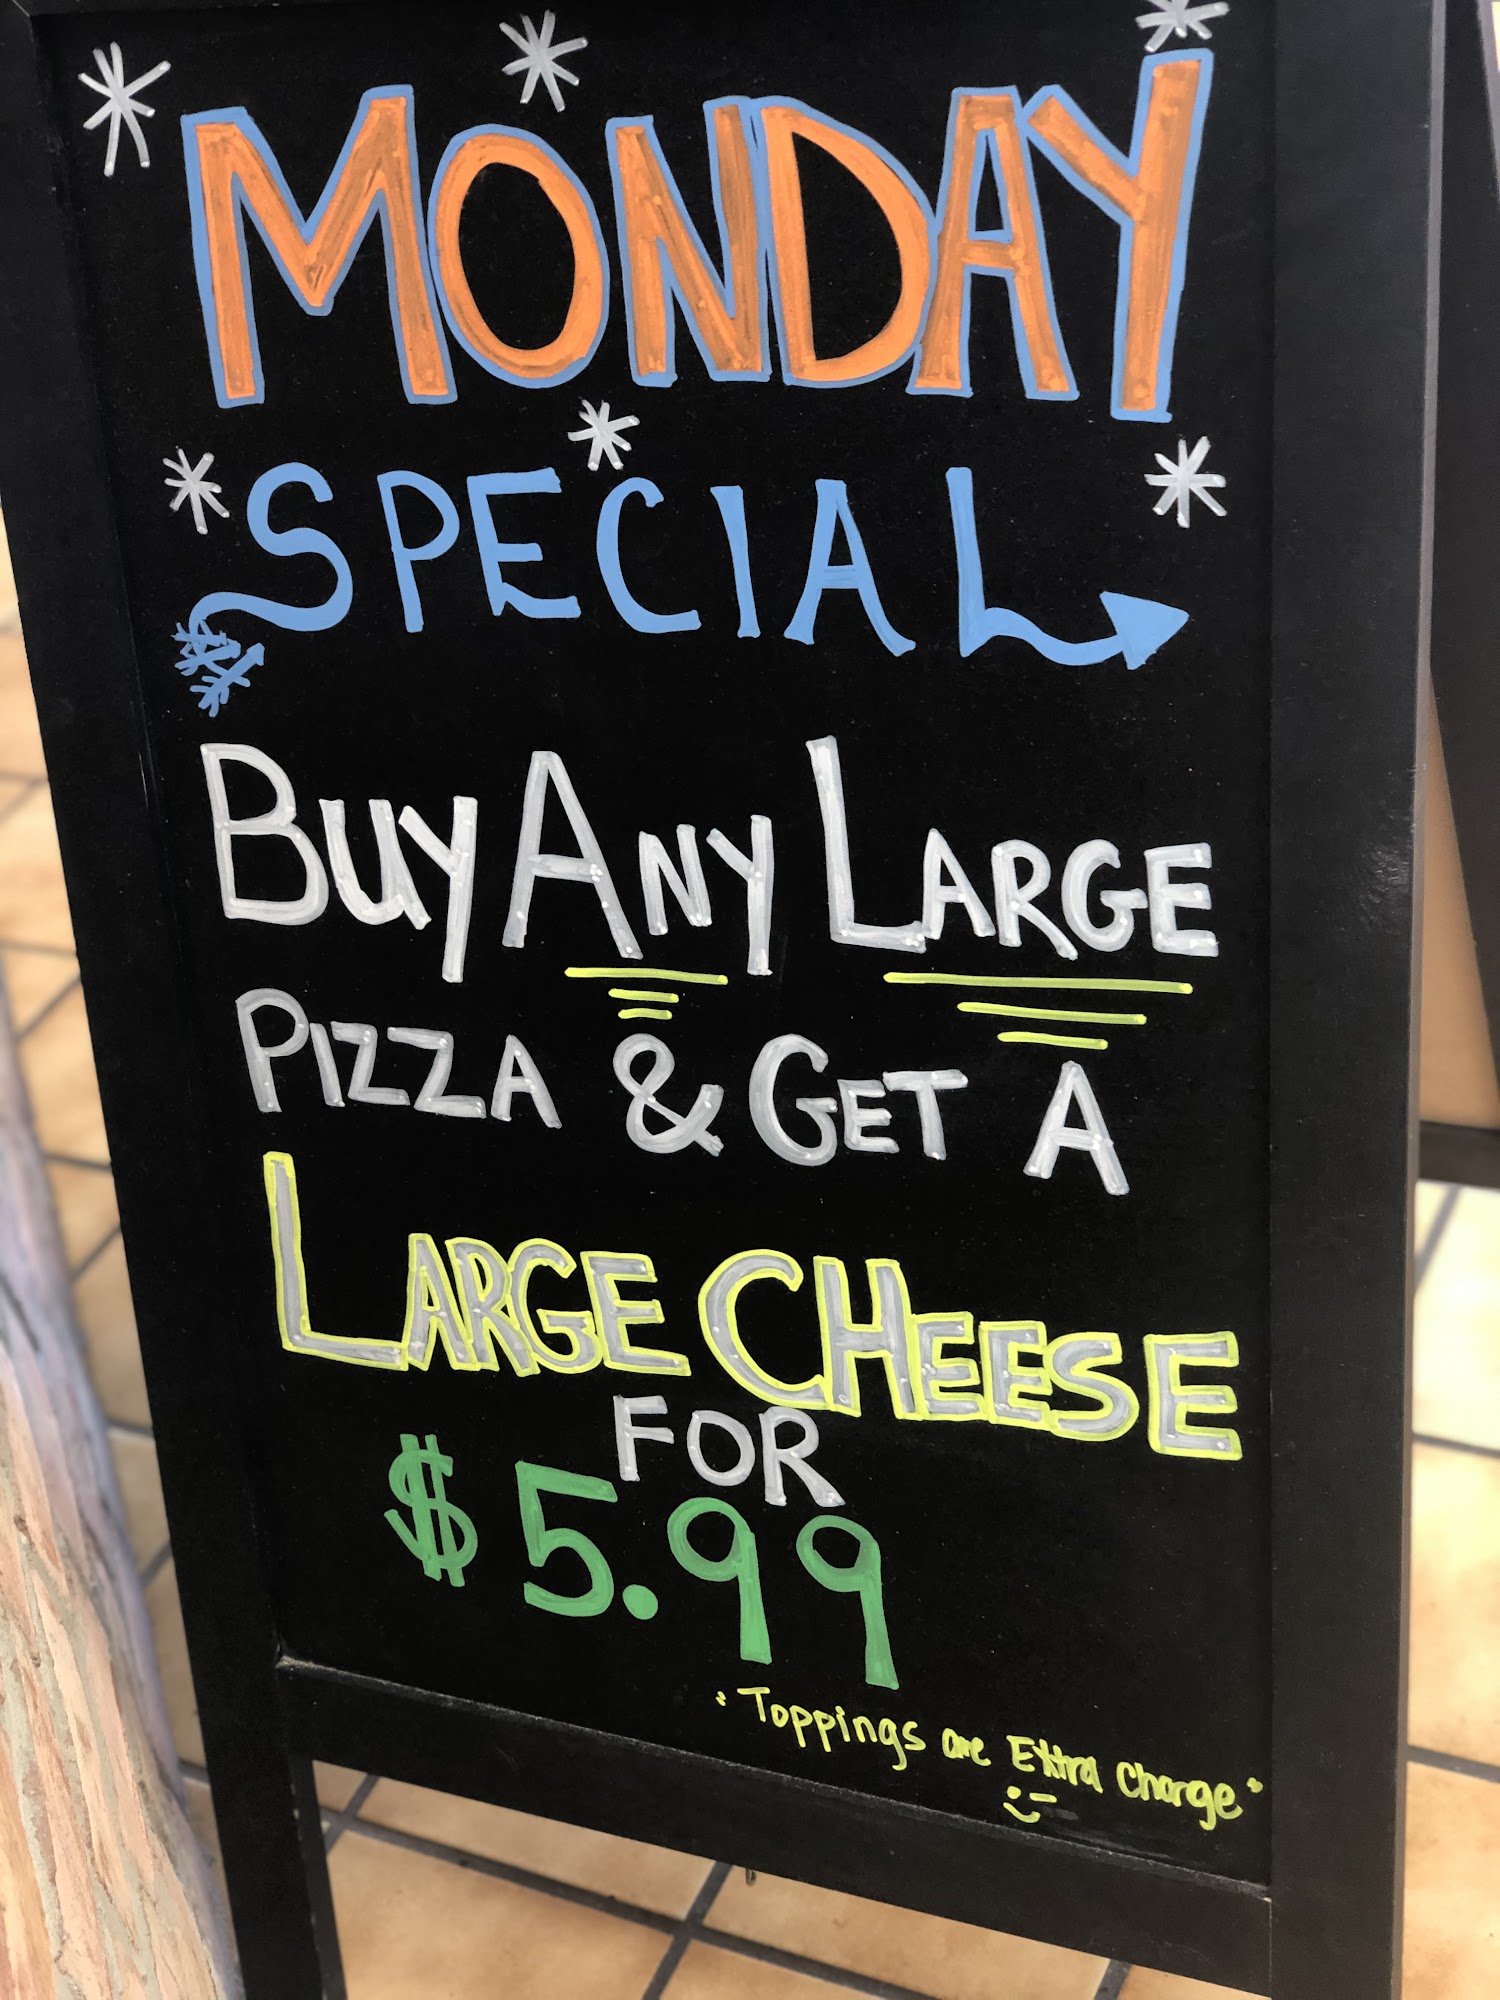 MONDAY
SPECIAL
BUY ANY LARGE
PIZZA & GET A
LARGE CHEESE
FOR
$5.99
"Toppings are Extra Charge"